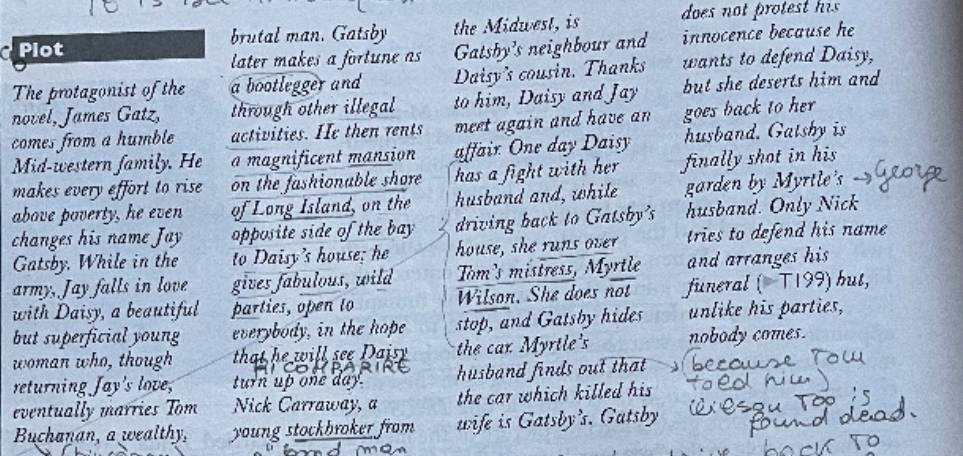 It is
Plot
The protagonist of the
novel, James Gatz,
comes from a humble
Mid-western family. He
makes every effort to rise
above poverty, he even
changes his name Jay
Gatsby. While in the
army, Jay falls in love
with Daisy, a beautiful
but superficial young
woman who, though
returning Jay's love,
eventually marries Tom
Buchanan, a wealthy,
brutal man. Gatsby
later makes a fortune as
a bootlegger and
through other illegal
activities. He then rents
a magnificent mansion
on the fashionable shore
of Long Island, on the
opposite side of the bay
to Daisy's house; he
gives fabulous, wild
parties, open to
everybody, in the hope
that he will see Daisy
RICOMPARIRE
turn up one day.
Nick Carraway, a
young stockbroker from
bond man
the Midwest, is
Gatsby's neighbour and
Daisy's cousin. Thanks
to him, Daisy and Jay
meet again and have an
affair. One day Daisy
has a fight with her
husband and, while
driving back to Gatsby's
house, she runs over
Tom's mistress, Myrtle
Wilson. She does not
stop, and Gatsby hides
the car. Myrtle's
husband finds out that
the car which killed his
wife is Gatsby's. Gatsby
does not protest his
innocence because he
wants to defend Daisy,
but she deserts him and
goes back to her
husband. Gatsby is
finally shot in his
garden by Myrtle's → George
husband. Only Nick
tries to defend his name
and arranges his
funeral (►T199) but,
unlike his parties,
nobody comes.
(because Tom
toed him)
Wilson Too is
found dead.
back to